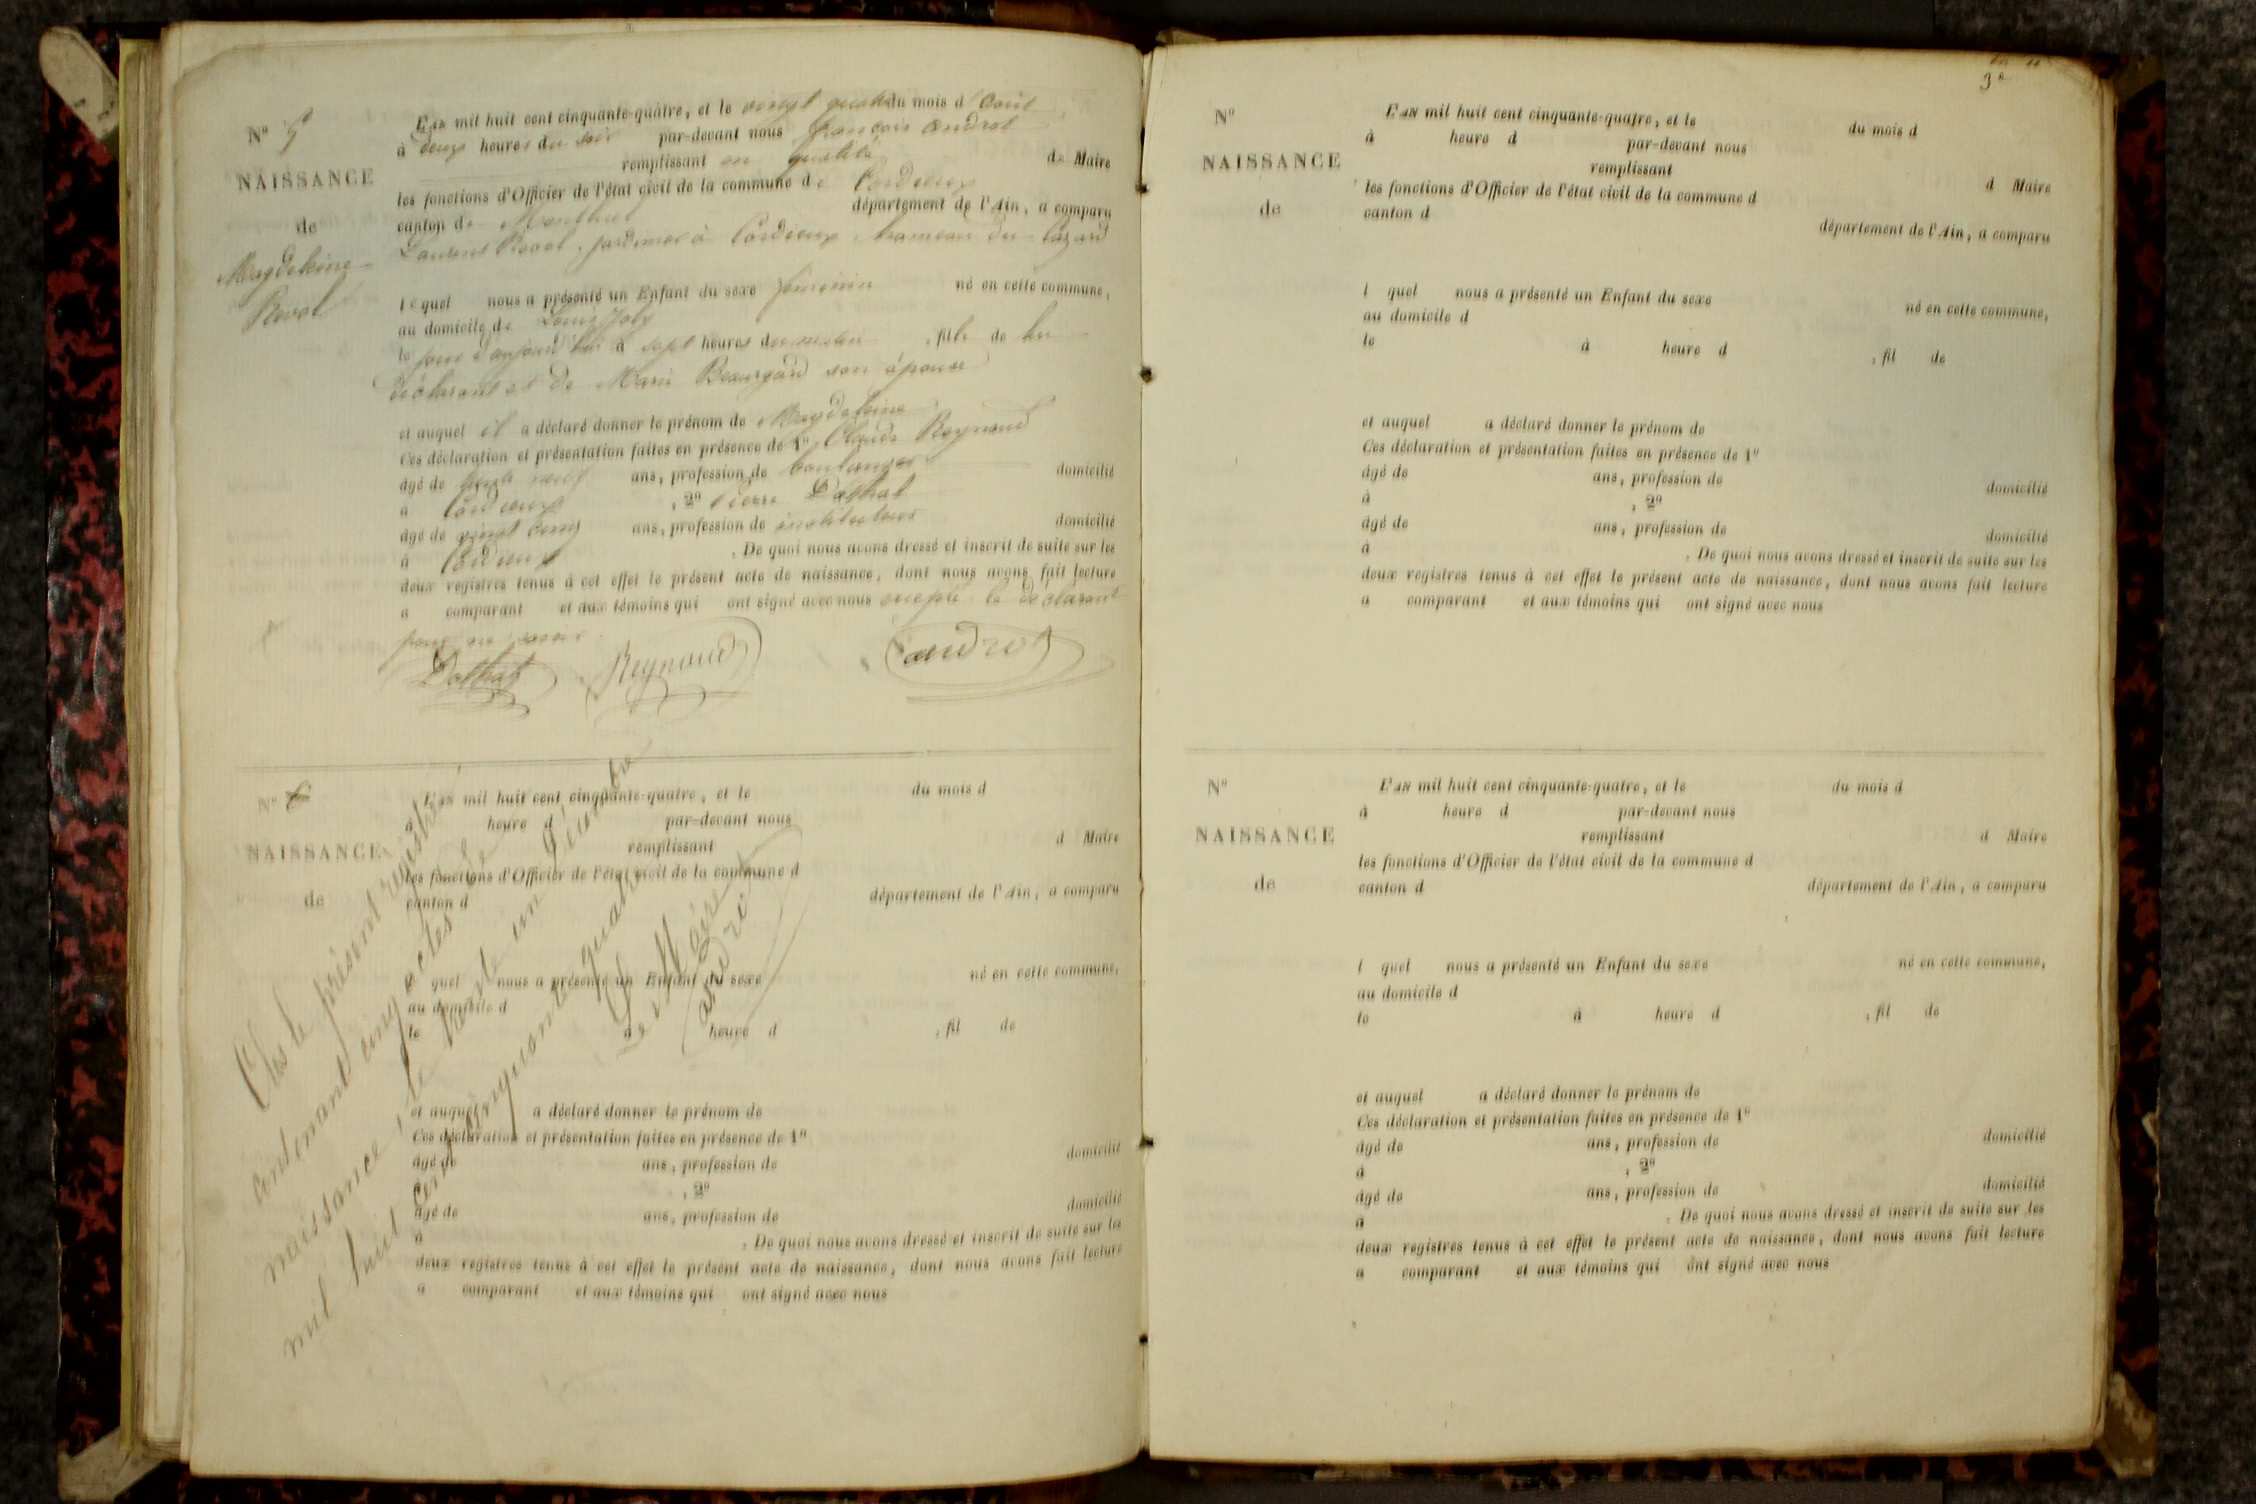 Nº 5
NAISSANCE
de
Magdeleine
Revol
L'AN mil huit cent cinquante-quatre, et le vingt quatre du mois d'août
à deux heures du soir par-devant nous françois androt
remplissant en qualité de Maire
les fonctions d'Officier de l'état civil de la commune de Cordieux
canton de Montluel département de l'Ain, a comparu
Laurent Revol, jardinier à Cordieux hameau du
lequel nous a présenté un Enfant du sexe féminin né en cette commune,
au domicile de Louis Joly
le jour d'aujourd'hui à sept heures du matin, fille de lui
déclarant et de Marie Beauregard son épouse
et auquel il a déclaré donner le prénom de Magdeleine
Ces déclaration et présentation faites en présence de 1º Claude Reynaud
âgé de trente neuf ans, profession de boulanger domicilié
à Cordieux, 2º Pierre
âgé de vingt cinq ans, profession de instituteur domicilié
à Cordieux. De quoi nous avons dressé et inscrit de suite sur les
deux registres tenus à cet effet le présent acte de naissance, dont nous avons fait lecture
a comparant et aux témoins qui ont signé avec nous excepté le déclarant
pour ne savoir.
Reynaud androt
Nº 6
NAISSANCE
de
L'AN mil huit cent cinquante-quatre, et le du mois d
à heure d par-devant nous
remplissant d Maire
les fonctions d'Officier de l'état civil de la commune d
canton d département de l'Ain, a comparu
l quel nous a présenté un Enfant du sexe né en cette commune,
au domicile d
le à heure d , fil de
et auquel a déclaré donner le prénom de
Ces déclaration et présentation faites en présence de 1º
âgé de ans, profession de domicilié
à , 2º
âgé de ans, profession de domicilié
à . De quoi nous avons dressé et inscrit de suite sur les
deux registres tenus à cet effet le présent acte de naissance, dont nous avons fait lecture
a comparant et aux témoins qui ont signé avec nous
Clos le présent registre
contenant cinq actes de
naissance, le trente un Décembre
mil huit cent cinquante quatre
Le Maire
androt
3e
Nº
NAISSANCE
de
L'AN mil huit cent cinquante-quatre, et le du mois d
à heure d par-devant nous
remplissant d Maire
les fonctions d'Officier de l'état civil de la commune d
canton d département de l'Ain, a comparu
l quel nous a présenté un Enfant du sexe né en cette commune,
au domicile d
le à heure d , fil de
et auquel a déclaré donner le prénom de
Ces déclaration et présentation faites en présence de 1º
âgé de ans, profession de domicilié
à , 2º
âgé de ans, profession de domicilié
à . De quoi nous avons dressé et inscrit de suite sur les
deux registres tenus à cet effet le présent acte de naissance, dont nous avons fait lecture
a comparant et aux témoins qui ont signé avec nous
Nº
NAISSANCE
de
L'AN mil huit cent cinquante-quatre, et le du mois d
à heure d par-devant nous
remplissant d Maire
les fonctions d'Officier de l'état civil de la commune d
canton d département de l'Ain, a comparu
l quel nous a présenté un Enfant du sexe né en cette commune,
au domicile d
le à heure d , fil de
et auquel a déclaré donner le prénom de
Ces déclaration et présentation faites en présence de 1º
âgé de ans, profession de domicilié
à , 2º
âgé de ans, profession de domicilié
à . De quoi nous avons dressé et inscrit de suite sur les
deux registres tenus à cet effet le présent acte de naissance, dont nous avons fait lecture
a comparant et aux témoins qui ont signé avec nous